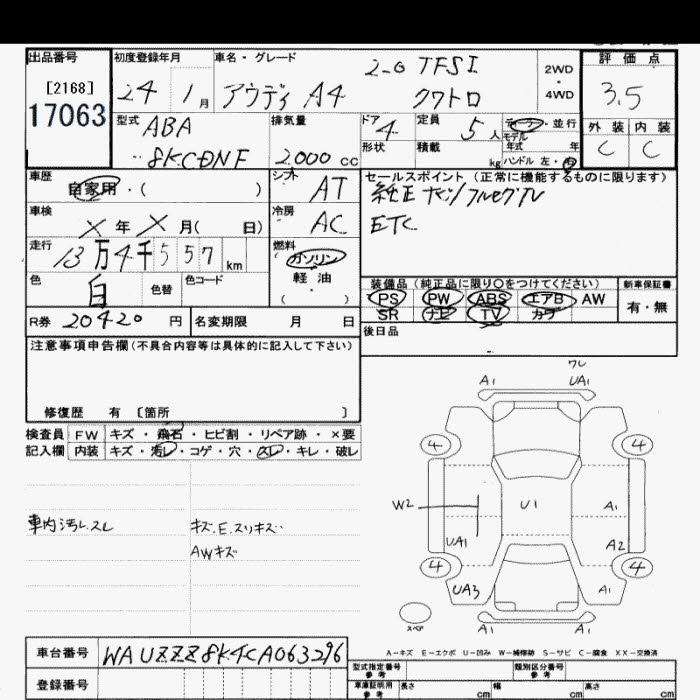 出品番号 初度登録年月 車名・グレード 評価点
[2168] 24年 1月 アウディ A4 2-0 TFSI クワトロ 2WD・4WD 3.5
17063
型式 ABA 排気量 ドア 4 定員 5人 ディーラー・並行 外装 内装
8KCDNF 2.000cc 形状 積載 kg モデル年式 年 C C
ハンドル 左・右
車歴 自家用・( ) シフト AT セールスポイント(正常に機能するものに限ります)
車検 X年X月( 日) 冷房 AC 純正ナビ/フルセグTV
ETC
走行 13万4千557km 燃料 ガソリン
軽油
( ・ )
色 白 色替 色コード 装備品(純正品に限り○をつけてください) 新車保証書
PS PW ABS エアB AW 有・無
R券 20420円 名変期限 月 日 SR ナビ TV カワ
後日品
注意事項申告欄(不具合内容等は具体的に記入して下さい)
修復歴 有 〔箇所 〕
検査員 FW キズ・飛石・ヒビ割・リペア跡・×要
記入欄 内装 キズ・汚レ・コゲ・穴・スレ・キレ・破レ
ワレ
A1 UA1
4 4
W2 U1 A1
UA1 A2
4 4
UA3 A1
スペア A1 A1
車内汚レ.スレ キズ.E.スリキズ
AWキズ
A-キズ E-エクボ U-凹み W-補修跡 S-サビ C-腐食 XX-交換済
車台番号 WAUZZZ8K4CA063296
型式指定番号 参考 類別区分番号 参考
登録番号 車庫証明用 参考 長さ cm 幅 cm 高さ cm